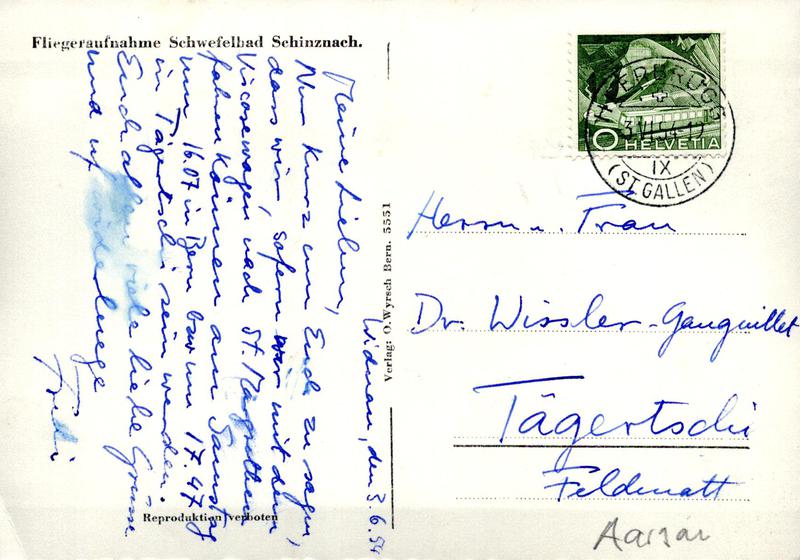 Fliegeraufnahme Schwefelbad Schinznach.
Widnau, den 3.6.54
Meine Lieben,
Nur kurz um Euch zu sagen,
dass wir, sofern wir mit dem
Viscosewagen nach St. Margrethen
fahren können am Samstag
um 16.07 in Bern bzw um 17.47
in Tägertschi sein werden.
Euch allen viele liebe Grüsse
und uf widerluege
Reproduktion verboten
Verlag: O. Wyrsch Bern. 5551
HEERBRUGG
3.VI.54-17
IX
(ST. GALLEN)
10 HELVETIA
Herrn u. Frau
Dr. Wissler-Ganguillet
Tägertschi
Feldmatt
Aargau